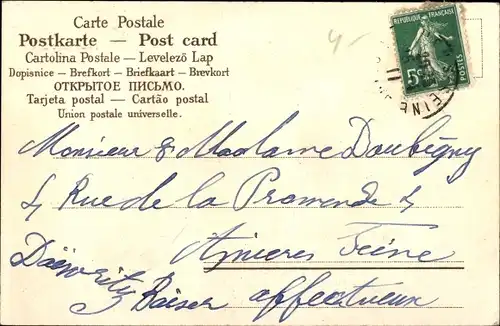 Carte Postale
Postkarte — Post card
Cartolina Postale — Levelező Lap
Dopisnice — Brefkort — Briefkaart — Brevkort
ОТКРЫТОЕ ПИСЬМО.
Tarjeta postal — Cartão postal
Union postale universelle.
REPUBLIQUE FRANÇAISE
5c
POSTES
11
SEINE
Monsieur & Madame Daubigny
4 Rue de la Promenade 4
Asnieres Seine
Baiser affectueux